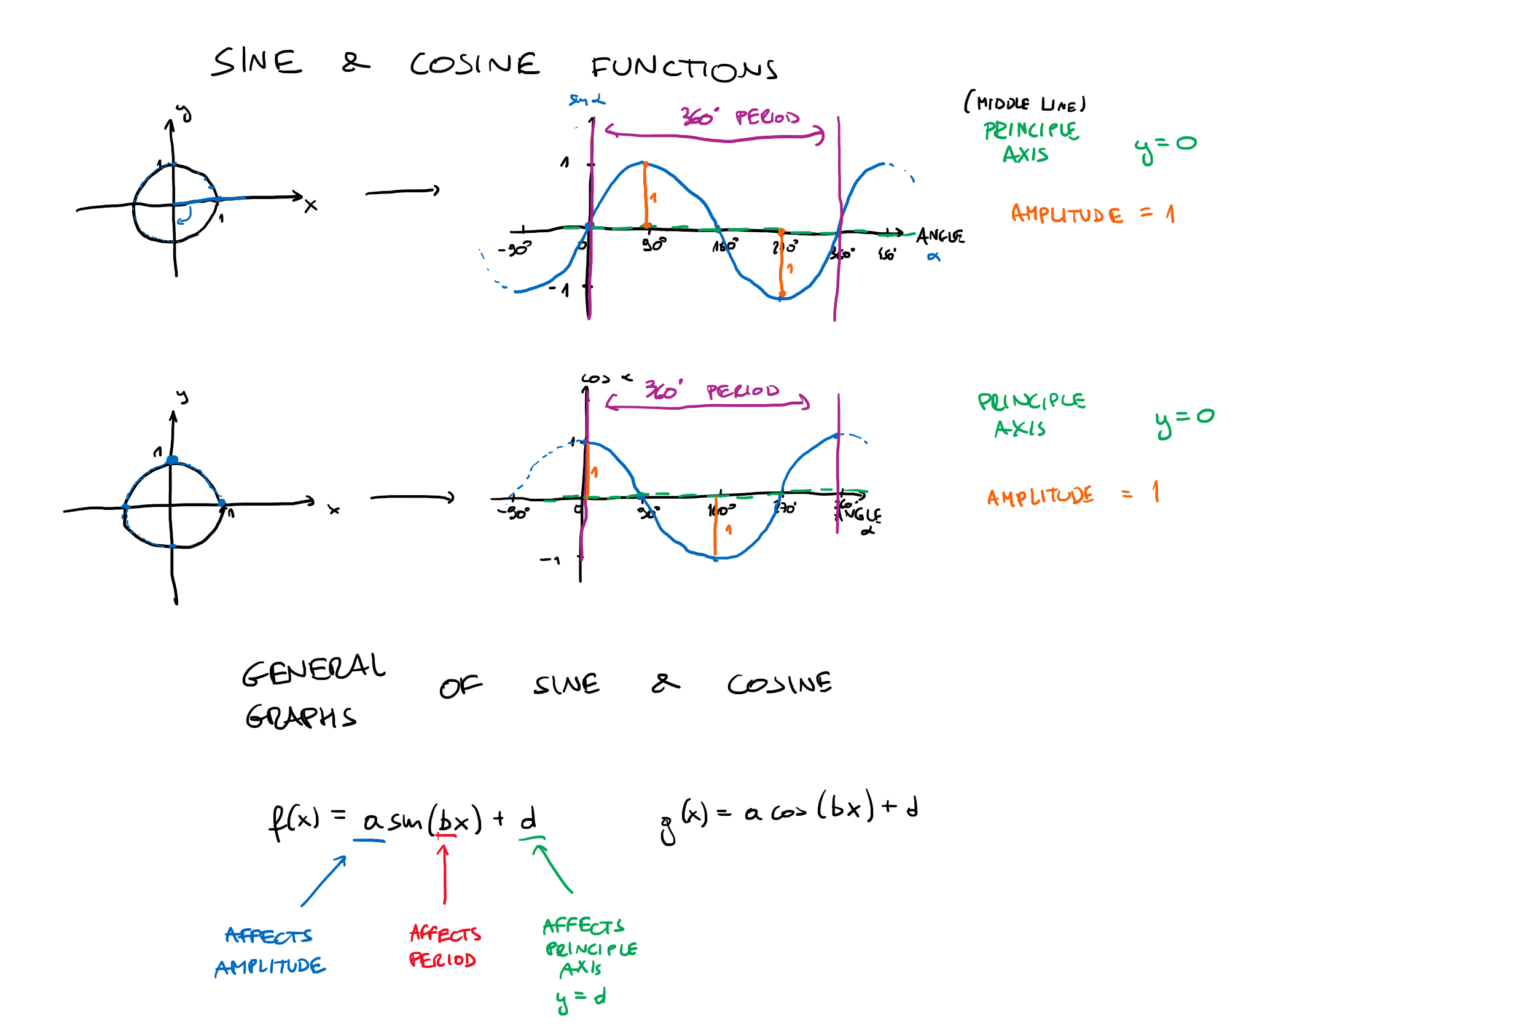 SINE & COSINE FUNCTIONS
y
1
1
x
sin α
360° PERIOD
1
1
-90°
0
90°
180°
270°
360°
450°
ANGLE
α
1
-1
(MIDDLE LINE)
PRINCIPLE
AXIS
y=0
AMPLITUDE = 1
y
1
1
x
cos α
360° PERIOD
1
1
-90°
0
90°
180°
270°
ANGLE
α
1
-1
PRINCIPLE
AXIS
y=0
AMPLITUDE = 1
GENERAL
GRAPHS
OF SINE & COSINE
f(x) = a sin(bx) + d
g(x) = a cos(bx) + d
AFFECTS
AMPLITUDE
AFFECTS
PERIOD
AFFECTS
PRINCIPLE
AXIS
y = d